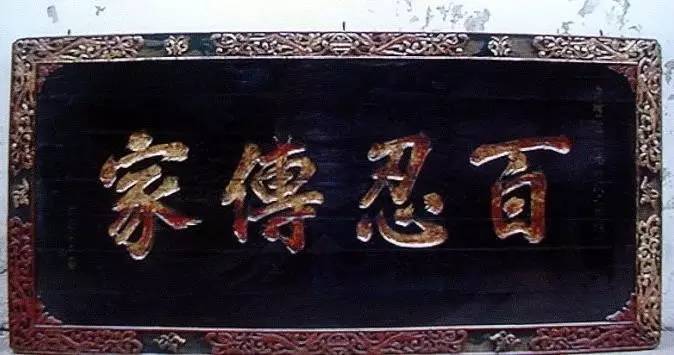 百忍傳家